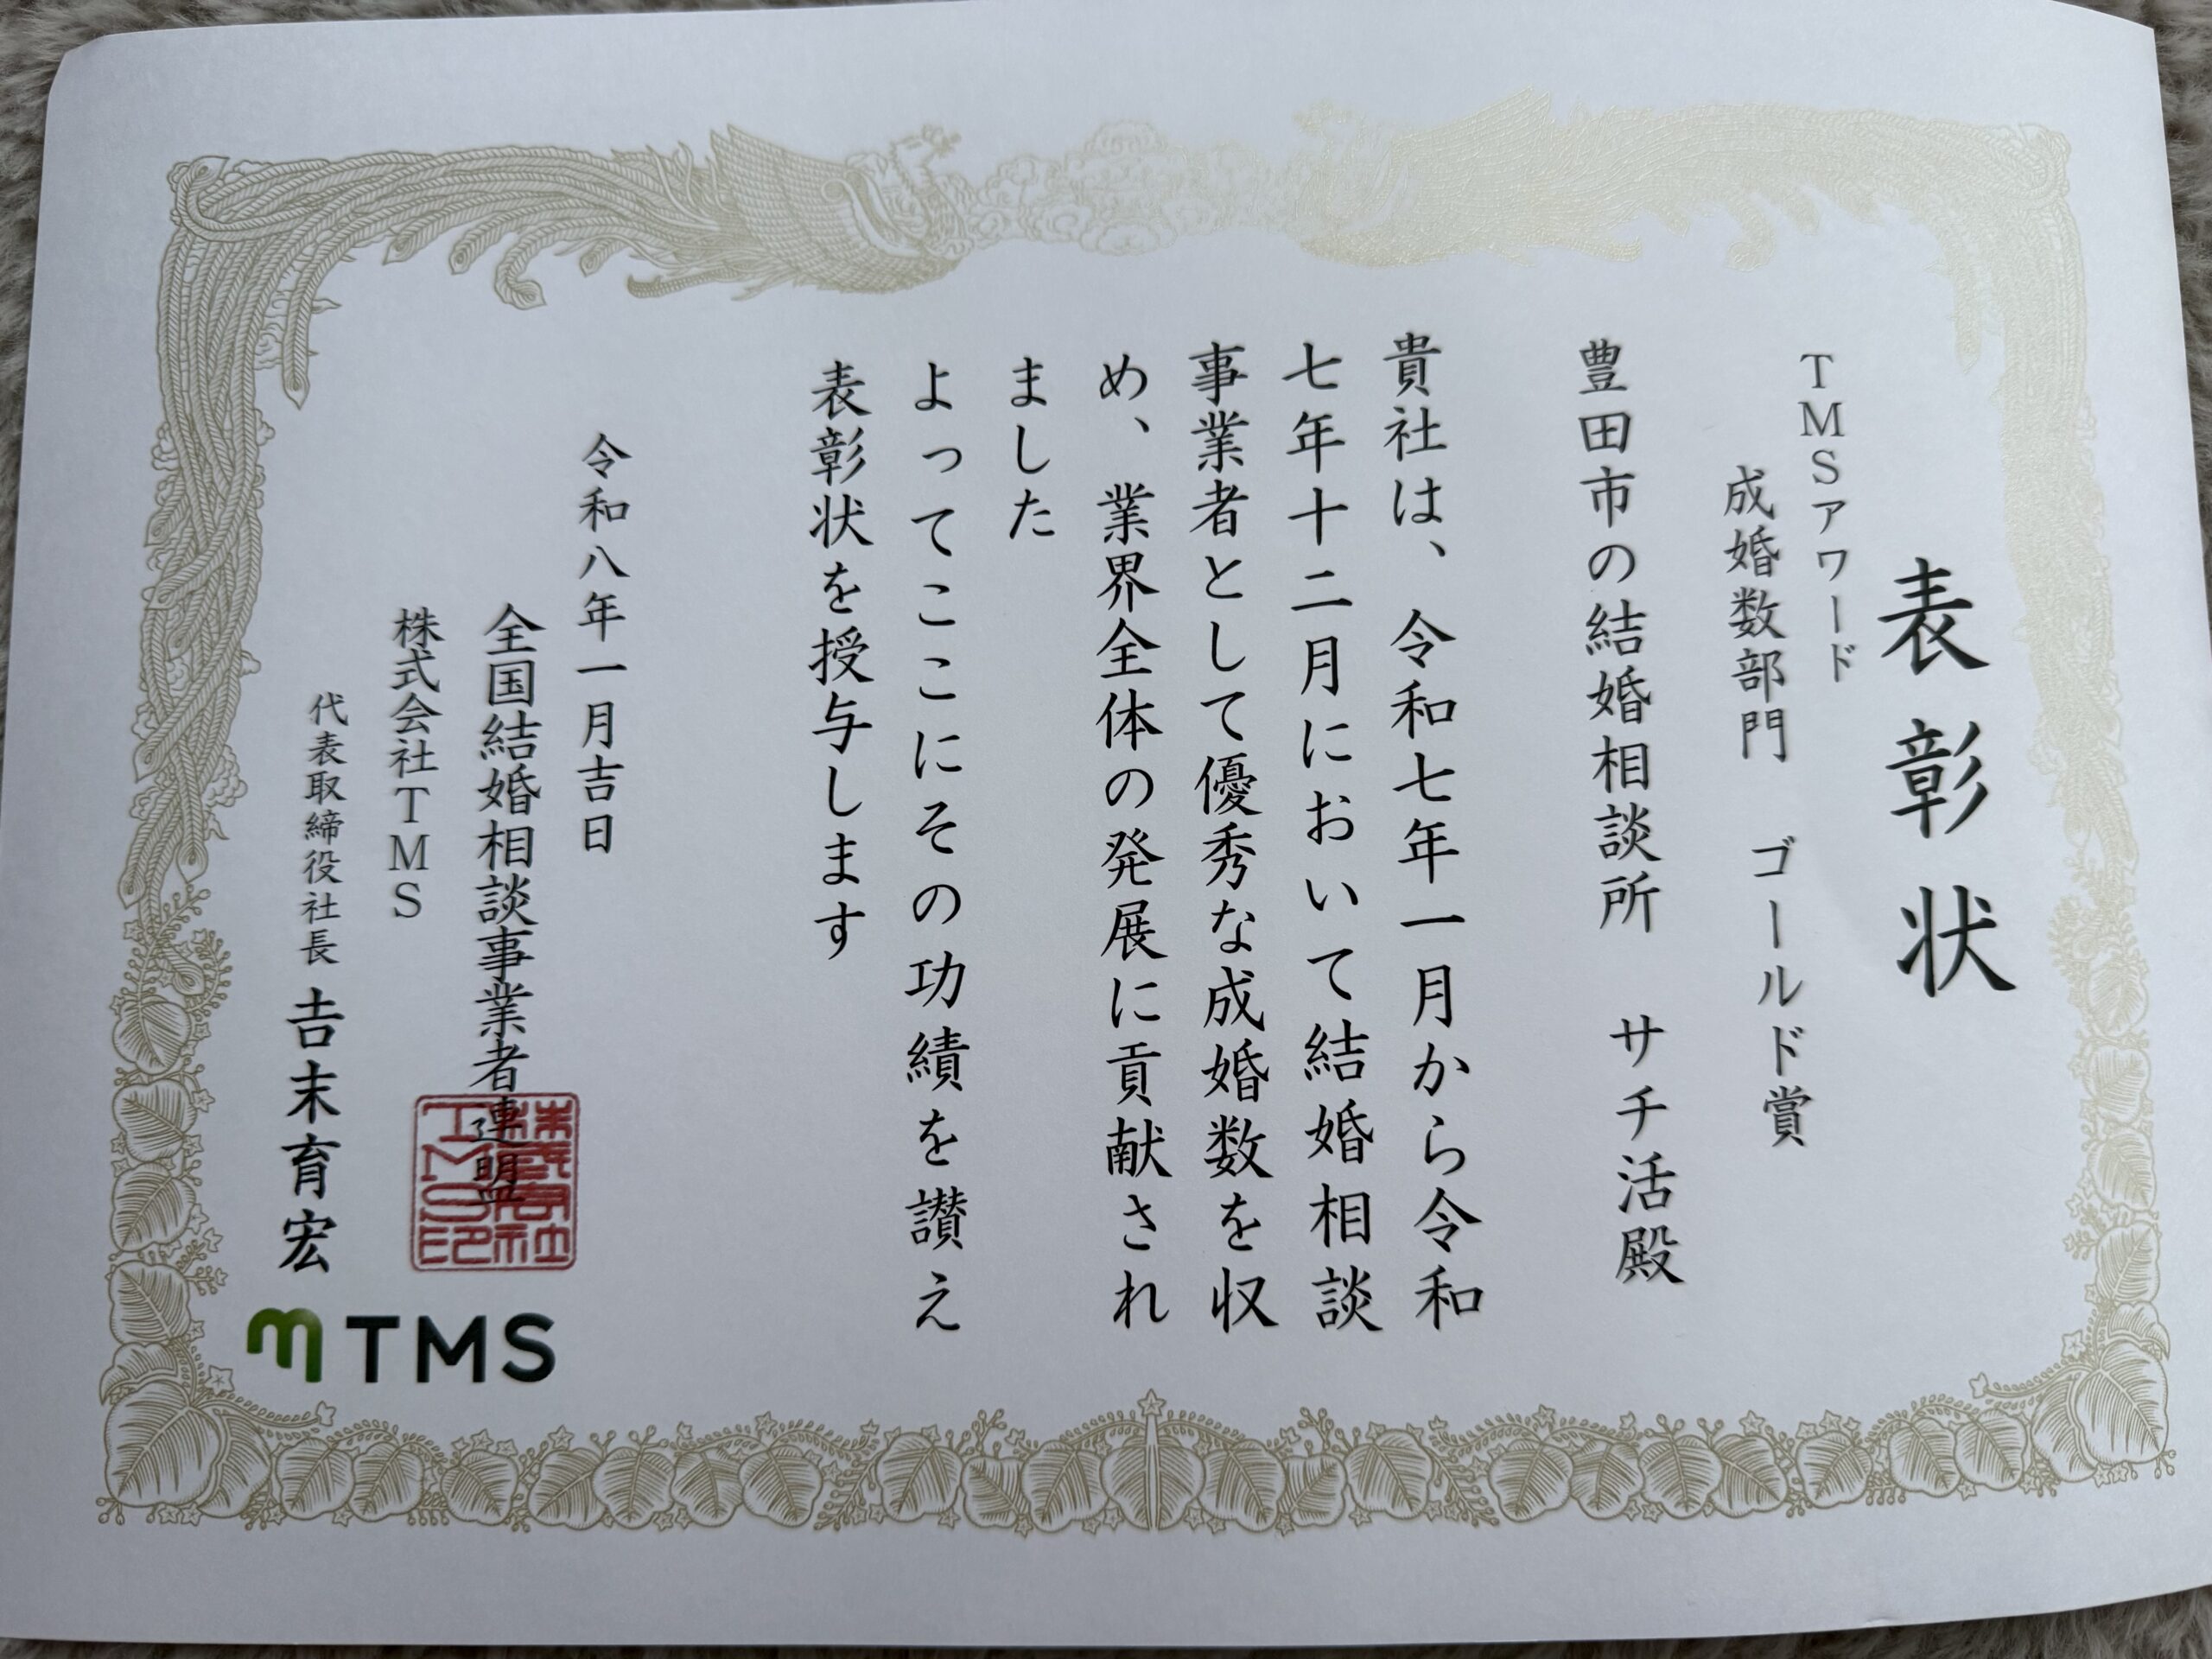 表彰状
TMSアワード
成婚数部門　ゴールド賞
豊田市の結婚相談所　サチ活殿
貴社は、令和七年一月から令和
七年十二月において結婚相談
事業者として優秀な成婚数を収
め、業界全体の発展に貢献され
ました
よってここにその功績を讃え
表彰状を授与します
令和八年一月吉日
全国結婚相談事業者連盟
株式会社TMS
代表取締役社長　吉末育宏
株式会社
TMS印
TMS